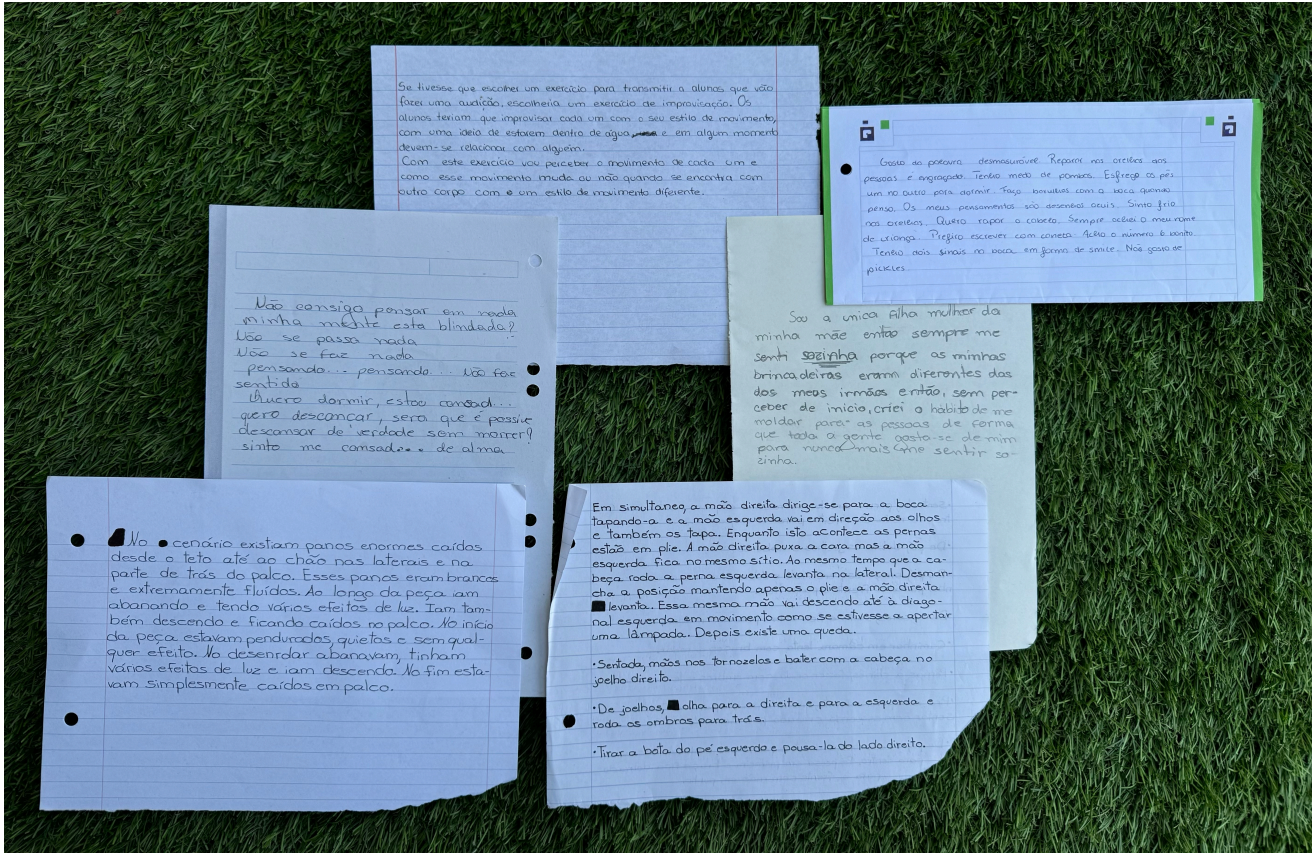 Se tivesse que escolher um exercício para transmitir a alunos que vão
fazer uma audição, escolheria um exercício de improvisação. Os
alunos teriam que improvisar cada um com o seu estilo de movimento,
com uma ideia de estarem dentro de água, e em algum momento
devem-se relacionar com alguém.
Com este exercício vou perceber o movimento de cada um e
como esse movimento muda ou não quando se encontra com
outro corpo com um estilo de movimento diferente.
Gosto da palavra desmesurável. Reparar nas orelhas das
pessoas é engraçado. Tenho medo de pombos. Esfrego os pés
um no outro para dormir. Faço barulhos com a boca quando
penso. Os meus pensamentos são desenhos azuis. Sinto frio
nas orelhas. Quero rapar o cabelo. Sempre achei o meu nome
de criança. Prefiro escrever com caneta. Acho o número 6 bonito.
Tenho dois sinais na boca em forma de smile. Não gosto de
pickles.
Não consigo pensar em nada
minha mente esta blindada?
Não se passa nada
Não se faz nada
pensando... pensando... Não faz
sentido
Quero dormir, estou cansad...
quero descancar, sera que é possive
descansar de verdade sem morrer?
sinto me cansad... de alma
Sou a unica filha mulher da
minha mãe então sempre me
senti sozinha porque as minhas
brincadeiras eram diferentes das
dos meus irmãos e então, sem per-
ceber de inicio, criei o hábito de me
moldar para as pessoas de forma
que toda a gente gosta-se de mim
para nunca mais me sentir so-
zinha.
No cenário existiam panos enormes caídos
desde o teto até ao chão nas laterais e na
parte de trás do palco. Esses panos eram brancos
e extremamente fluídos. Ao longo da peça iam
abanando e tendo vários efeitos de luz. Iam tam-
bém descendo e ficando caídos no palco. No início
da peça estavam pendurados, quietos e sem qual-
quer efeito. No desenrdar abanavam, tinham
vários efeitos de luz e iam descendo. No fim esta-
vam simplesmente caídos em palco.
Em simultaneo, a mão direita dirige-se para a boca
tapando-a e a mão esquerda vai em direção aos olhos
e também os tapa. Enquanto isto acontece as pernas
estão em plie. A mão direita puxa a cara mas a mão
esquerda fica no mesmo sítio. Ao mesmo tempo que a ca-
beça roda a perna esquerda levanta na lateral. Desman-
cha a posição mantendo apenas o plie e a mão direita
levanta. Essa mesma mão vai descendo até à diago-
nal esquerda em movimento como se estivesse a apertar
uma lâmpada. Depois existe uma queda.
•Sentada, mãos nos tornozelos e bater com a cabeça no
joelho direito.
•De joelhos, olha para a direita e para a esquerda e
roda os ombros para trás.
•Tirar a bota do pé esquerdo e pousa-la do lado direito.